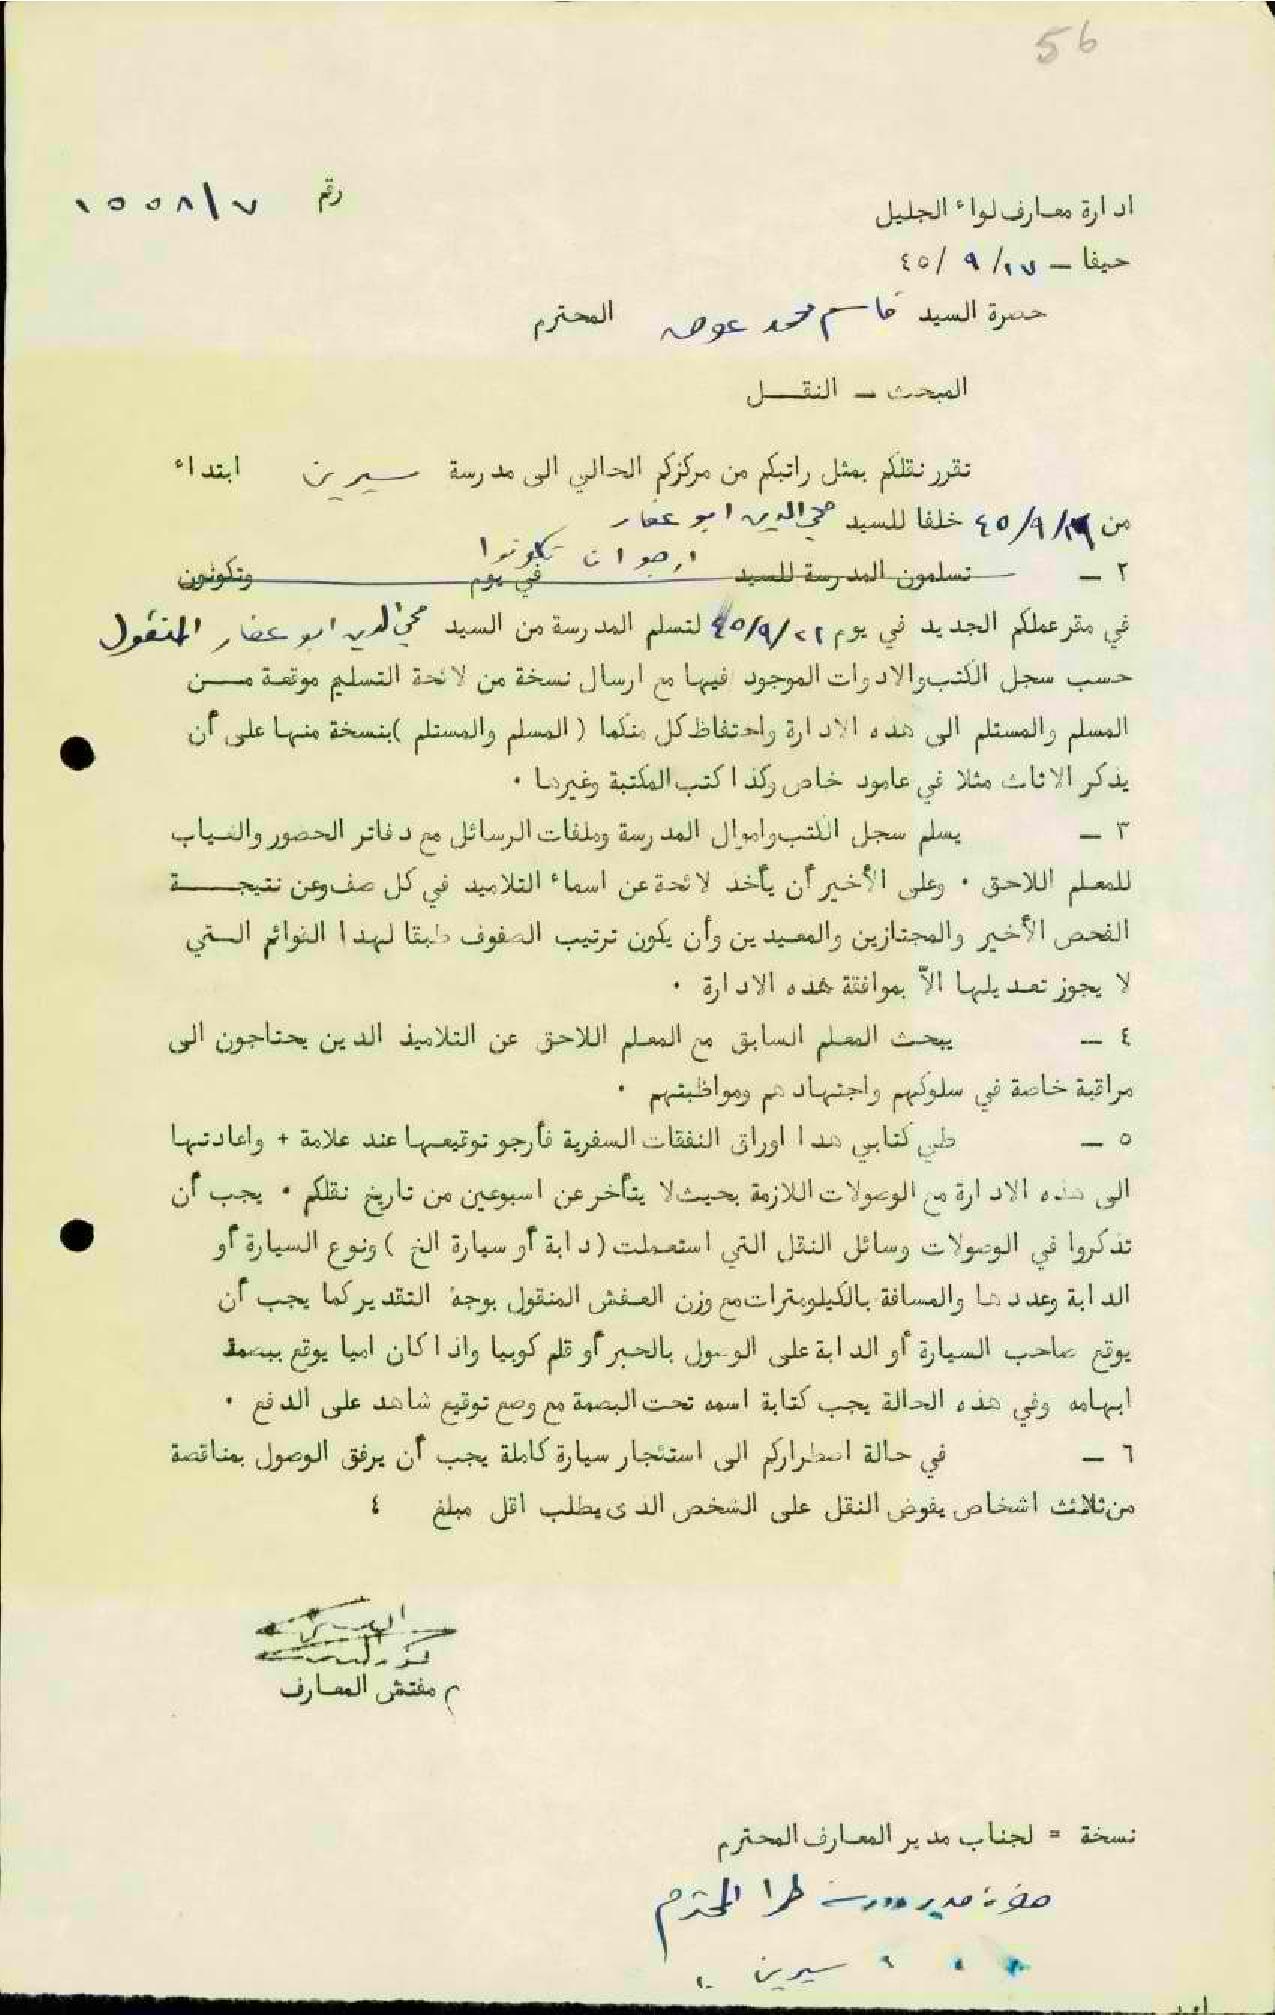 56
ادارة معارف لواء الجليل رقم ١٥٥٨/٧
حيفا – ١٧/ ٩ /٤٥
حضرة السيد قاسم محمد عوض المحترم
المبحث – النقــل
تقرر نقلكم بمثل راتبكم من مركزكم الحالي الى مدرسة سيرين ابتداء
من /٩/٤٥ خلفا للسيد محي الدين ابو غفار
ارجو ان تكونوا
٢ – تسلمون المدرسة للسيد في يوم وتكونون
في مقر عملكم الجديد في يوم ٢١/٩/٤٥ لتسلم المدرسة من السيد محي الدين ابو غفار المنقول
حسب سجل الكتب والادوات الموجود فيها مع ارسال نسخة من لائحة التسليم موقعة مــن
المسلم والمستلم الى هذه الادارة واحتفاظ كل منكما ( المسلم والمستلم ) بنسخة منها على أن
يذكر الاثاث مثلا في عامود خاص وكذا كتب المكتبة وغيرها ٠
٣ – يسلم سجل الكتب واموال المدرسة وملفات الرسائل مع دفاتر الحضور والغياب
للمعلم اللاحق ٠ وعلى الأخير أن يأخذ لائحة عن اسماء التلاميد في كل صف وعن نتيجـــة
الفحص الأخير والمجتازين والمعيدين وأن يكون ترتيب الصفوف طبقا لهدا القوائم الــتي
لا يجوز تعديلها الاّ بموافقة هذه الادارة ٠
٤ – يبحث المعلم السابق مع المعلم اللاحق عن التلاميذ الدين يحتاجون الى
مراقبة خاصة في سلوكهم واجتهادهم ومواظبتهم ٠
٥ – طي كتابي هدا اوراق النفقات السفرية فأرجو توقيعها عند علامة + واعادتها
الى هذه الادارة مع الوصولات اللازمة بحيث لا يتأخر عن اسبوعين من تاريخ نقلكم ٠ يجب أن
تذكروا في الوصولات وسائل النقل التي استعملت ( دابة أو سيارة الخ ) ونوع السيارة أو
الدابة وعددها والمسافة بالكيلومترات مع وزن العفش المنقول بوجه التقدير كما يجب أن
يوقع صاحب السيارة أو الدابة على الوصول بالحبر أو قلم كوبيا واذا كان اميا يوقع ببصمة
ابهامه وفي هذه الحالة يجب كتابة اسمه تحت البصمة مع وضع توقيع شاهد على الدفع ٠
٦ – في حالة اضطراركم الى استئجار سيارة كاملة يجب أن يرفق الوصول بمناقصة
من ثلاثة اشخاص يفوض النقل على الشخص الذى يطلب اقل مبلغ ٤
م مفتش المعارف
نسخة = لجناب مدير المعارف المحترم
حضرة مدير مدرسة طرا المحترم
سيرين